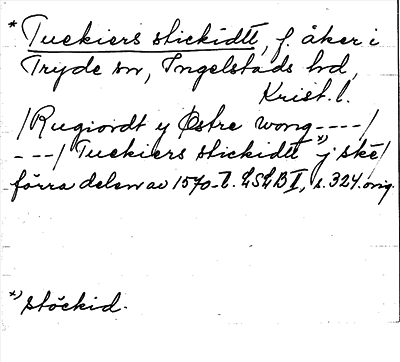 * Tuckiers stickidtt, f. åker i
Tryde sn, Ingelstads hd,
Krist. l.
/Rugiordt y Østre wong ----/
---/ Tuckiers stickidtt *) j skē/
förra delen av 1570-t. LSLB I, s. 324. orig.
*) stöckid.